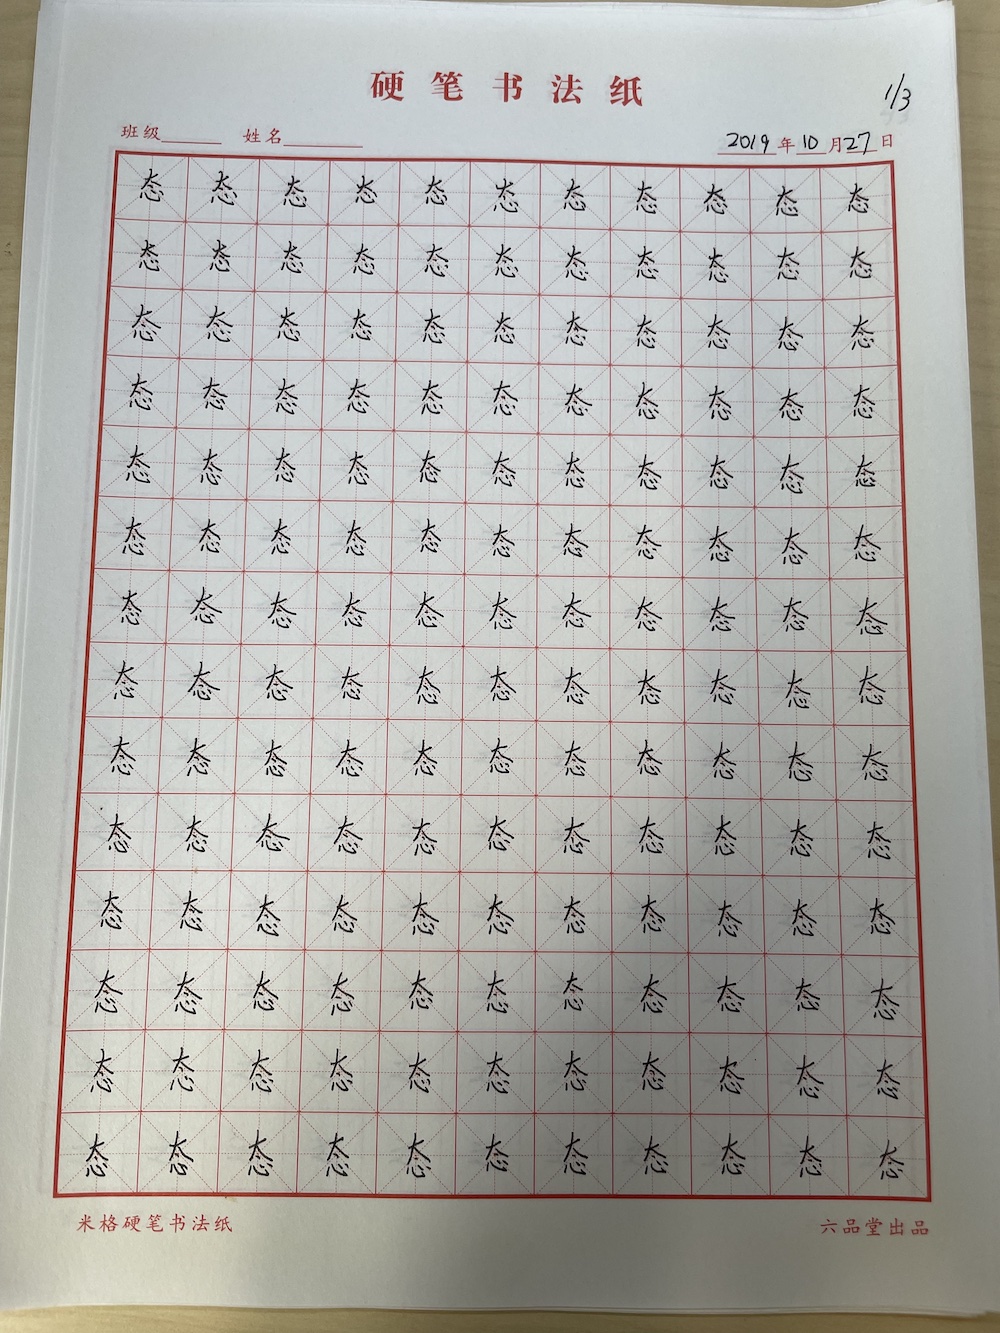 硬笔书法纸
1/3
班级 姓名 2019年10月27日
态态态态态态态态态态态
态态态态态态态态态态态
态态态态态态态态态态态
态态态态态态态态态态态
态态态态态态态态态态态
态态态态态态态态态态态
态态态态态态态态态态态
态态态态态态态态态态态
态态态态态态态态态态态
态态态态态态态态态态态
态态态态态态态态态态态
态态态态态态态态态态态
态态态态态态态态态态态
态态态态态态态态态态态
米格硬笔书法纸 六品堂出品